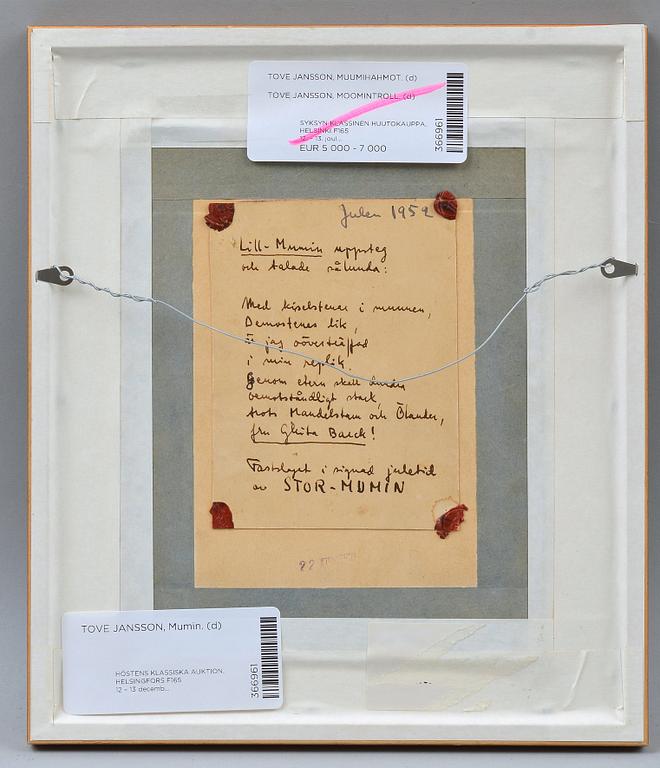 TOVE JANSSON, MUUMIHAHMOT. (d)
TOVE JANSSON, MOOMINTROLL. (d)
SYKSYN KLASSINEN HUUTOKAUPPA,
HELSINKI F165
12. - 13. joul...
EUR 5 000 - 7 000
366961
Julen 1952
Lill-Mumin uppsteg
och talade sålunda:
Med kiselstenar i munnen,
Demostenes lik,
är jag oöverträffad
i min replik.
Genom etern skall
oemotståndligt stark,
trots Mandelstam och Ölander,
fru Ghita Barck!
Fastslaget i signad juletid
av STOR-MUMIN
22
TOVE JANSSON, Mumin. (d)
HÖSTENS KLASSISKA AUKTION,
HELSINGFORS F165
12 – 13 decemb...
366961